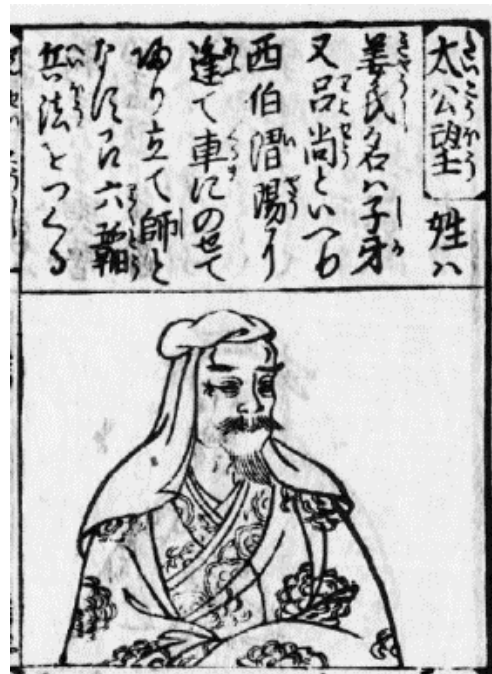 太公望 姓ハ
姜氏名ハ子牙
又呂尚といへり
西伯渭陽に
逢て車にのせて
帰り立て師と
なす六韜
兵法をつくる